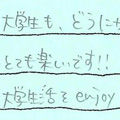 大学生も、どうにか
とても楽しいです!!
大学生活を enjoy